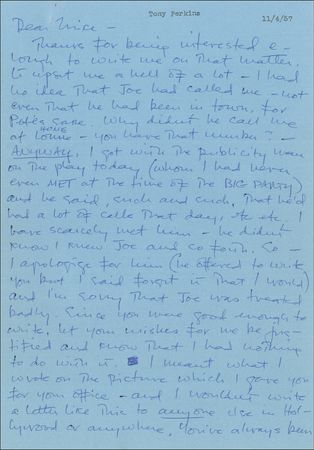 Tony Perkins
11/6/57
Dear Mike –
Thanks for being interested e-
nough to write me on that matter.
It upset me a hell of a lot – I had
no idea that Joe had called me – not
even that he had been in town, for
Pete's sake. Why didn't he call me
at HOME – you have that number? –
ANYWAY, I got with the publicity man
on the play today (whom I had never
even MET at the time of the BIG PARTY)
and he said, such and such, that he'd
had a lot of calls that day, etc etc. I
have scarcely met him – he didn't
know I knew Joe and so forth. So –
I apologise for him (he offered to write
you but I said forget it that I would)
and I'm sorry that Joe was treated
badly. Since you were good enough to
write, let your wishes for me be jus-
tified and know that I had nothing
to do with it. I meant what I
wrote on the picture which I gave you
for your office – and I wouldn't write
a letter like this to anyone else in Hol-
lywood or anywhere. You've always been